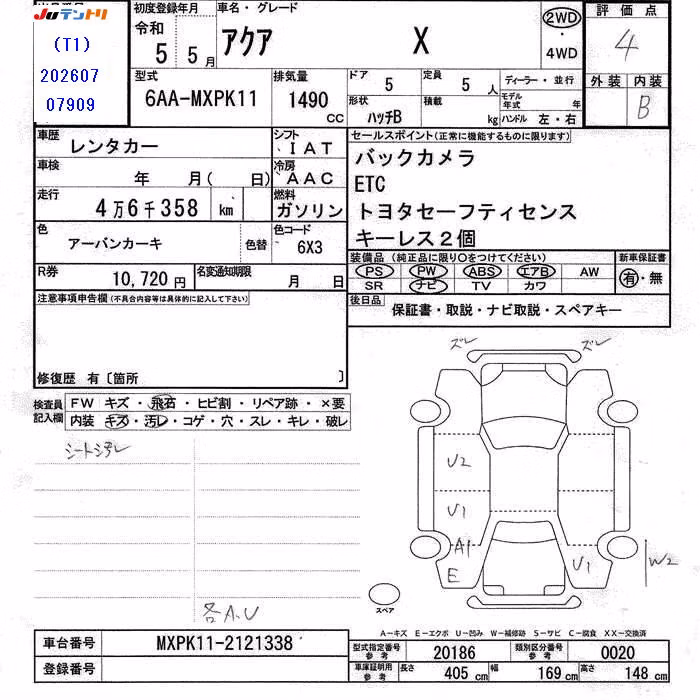 JUテントリ
(T1)
202607
07909
初度登録年月 令和 5年 5月
車名・グレード アクア X
2WD・4WD
評価点 4
外装 内装 B
型式 6AA-MXPK11
排気量 1490 CC
ドア 5
定員 5人
形状 ハッチB
積載 kg
ディーラー・並行
モデル年式 年
ハンドル 左・右
車歴 レンタカー
シフト IAT
車検 年 月( 日)
冷房 AAC
走行 4万6千358 km
燃料 ガソリン
色 アーバンカーキ
色替
色コード 6X3
R券 10,720円
名変通知期限 月 日
セールスポイント(正常に機能するものに限ります)
バックカメラ
ETC
トヨタセーフティセンス
キーレス2個
装備品(純正品に限り〇をつけてください)
PS PW ABS エアB AW
SR ナビ TV カワ
新車保証書
有・無
後日品 保証書・取説・ナビ取説・スペアキー
注意事項申告欄(不具合内容等は具体的に記入して下さい)
修復歴 有〔箇所 〕
検査員記入欄
FW キズ・飛石・ヒビ割・リペア跡・×要
内装 キズ・汚レ・コゲ・穴・スレ・キレ・破レ
シート汚レ
各A.U
ズレ ズレ
U2
U1
A1
E
U1
W2
スペア
A―キズ E―エクボ U―凹み W―補修跡 S―サビ C―腐食 XX―交換済
車台番号 MXPK11-2121338
登録番号
型式指定番号 参考 20186
類別区分番号 参考 0020
車庫証明用 参考 長さ 405cm 幅 169cm 高さ 148cm